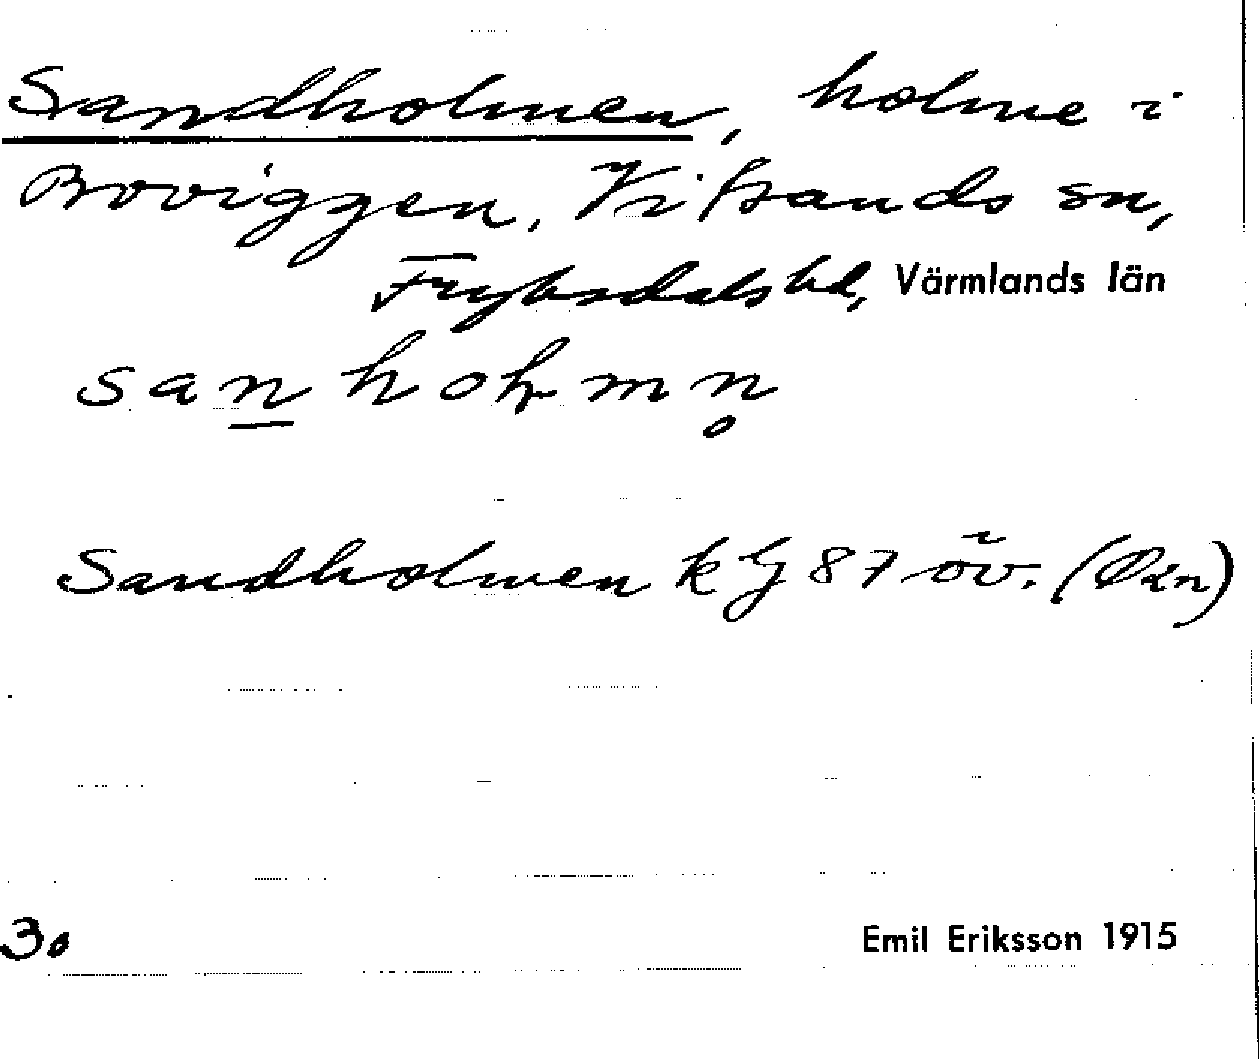 Sandholmen, holme i
Broviggen, Vitsands sn,
Fryksdals hd, Värmlands län
san hoḷmn̥
Sandholmen k bj 87 öv.
3.
Emil Eriksson 1915